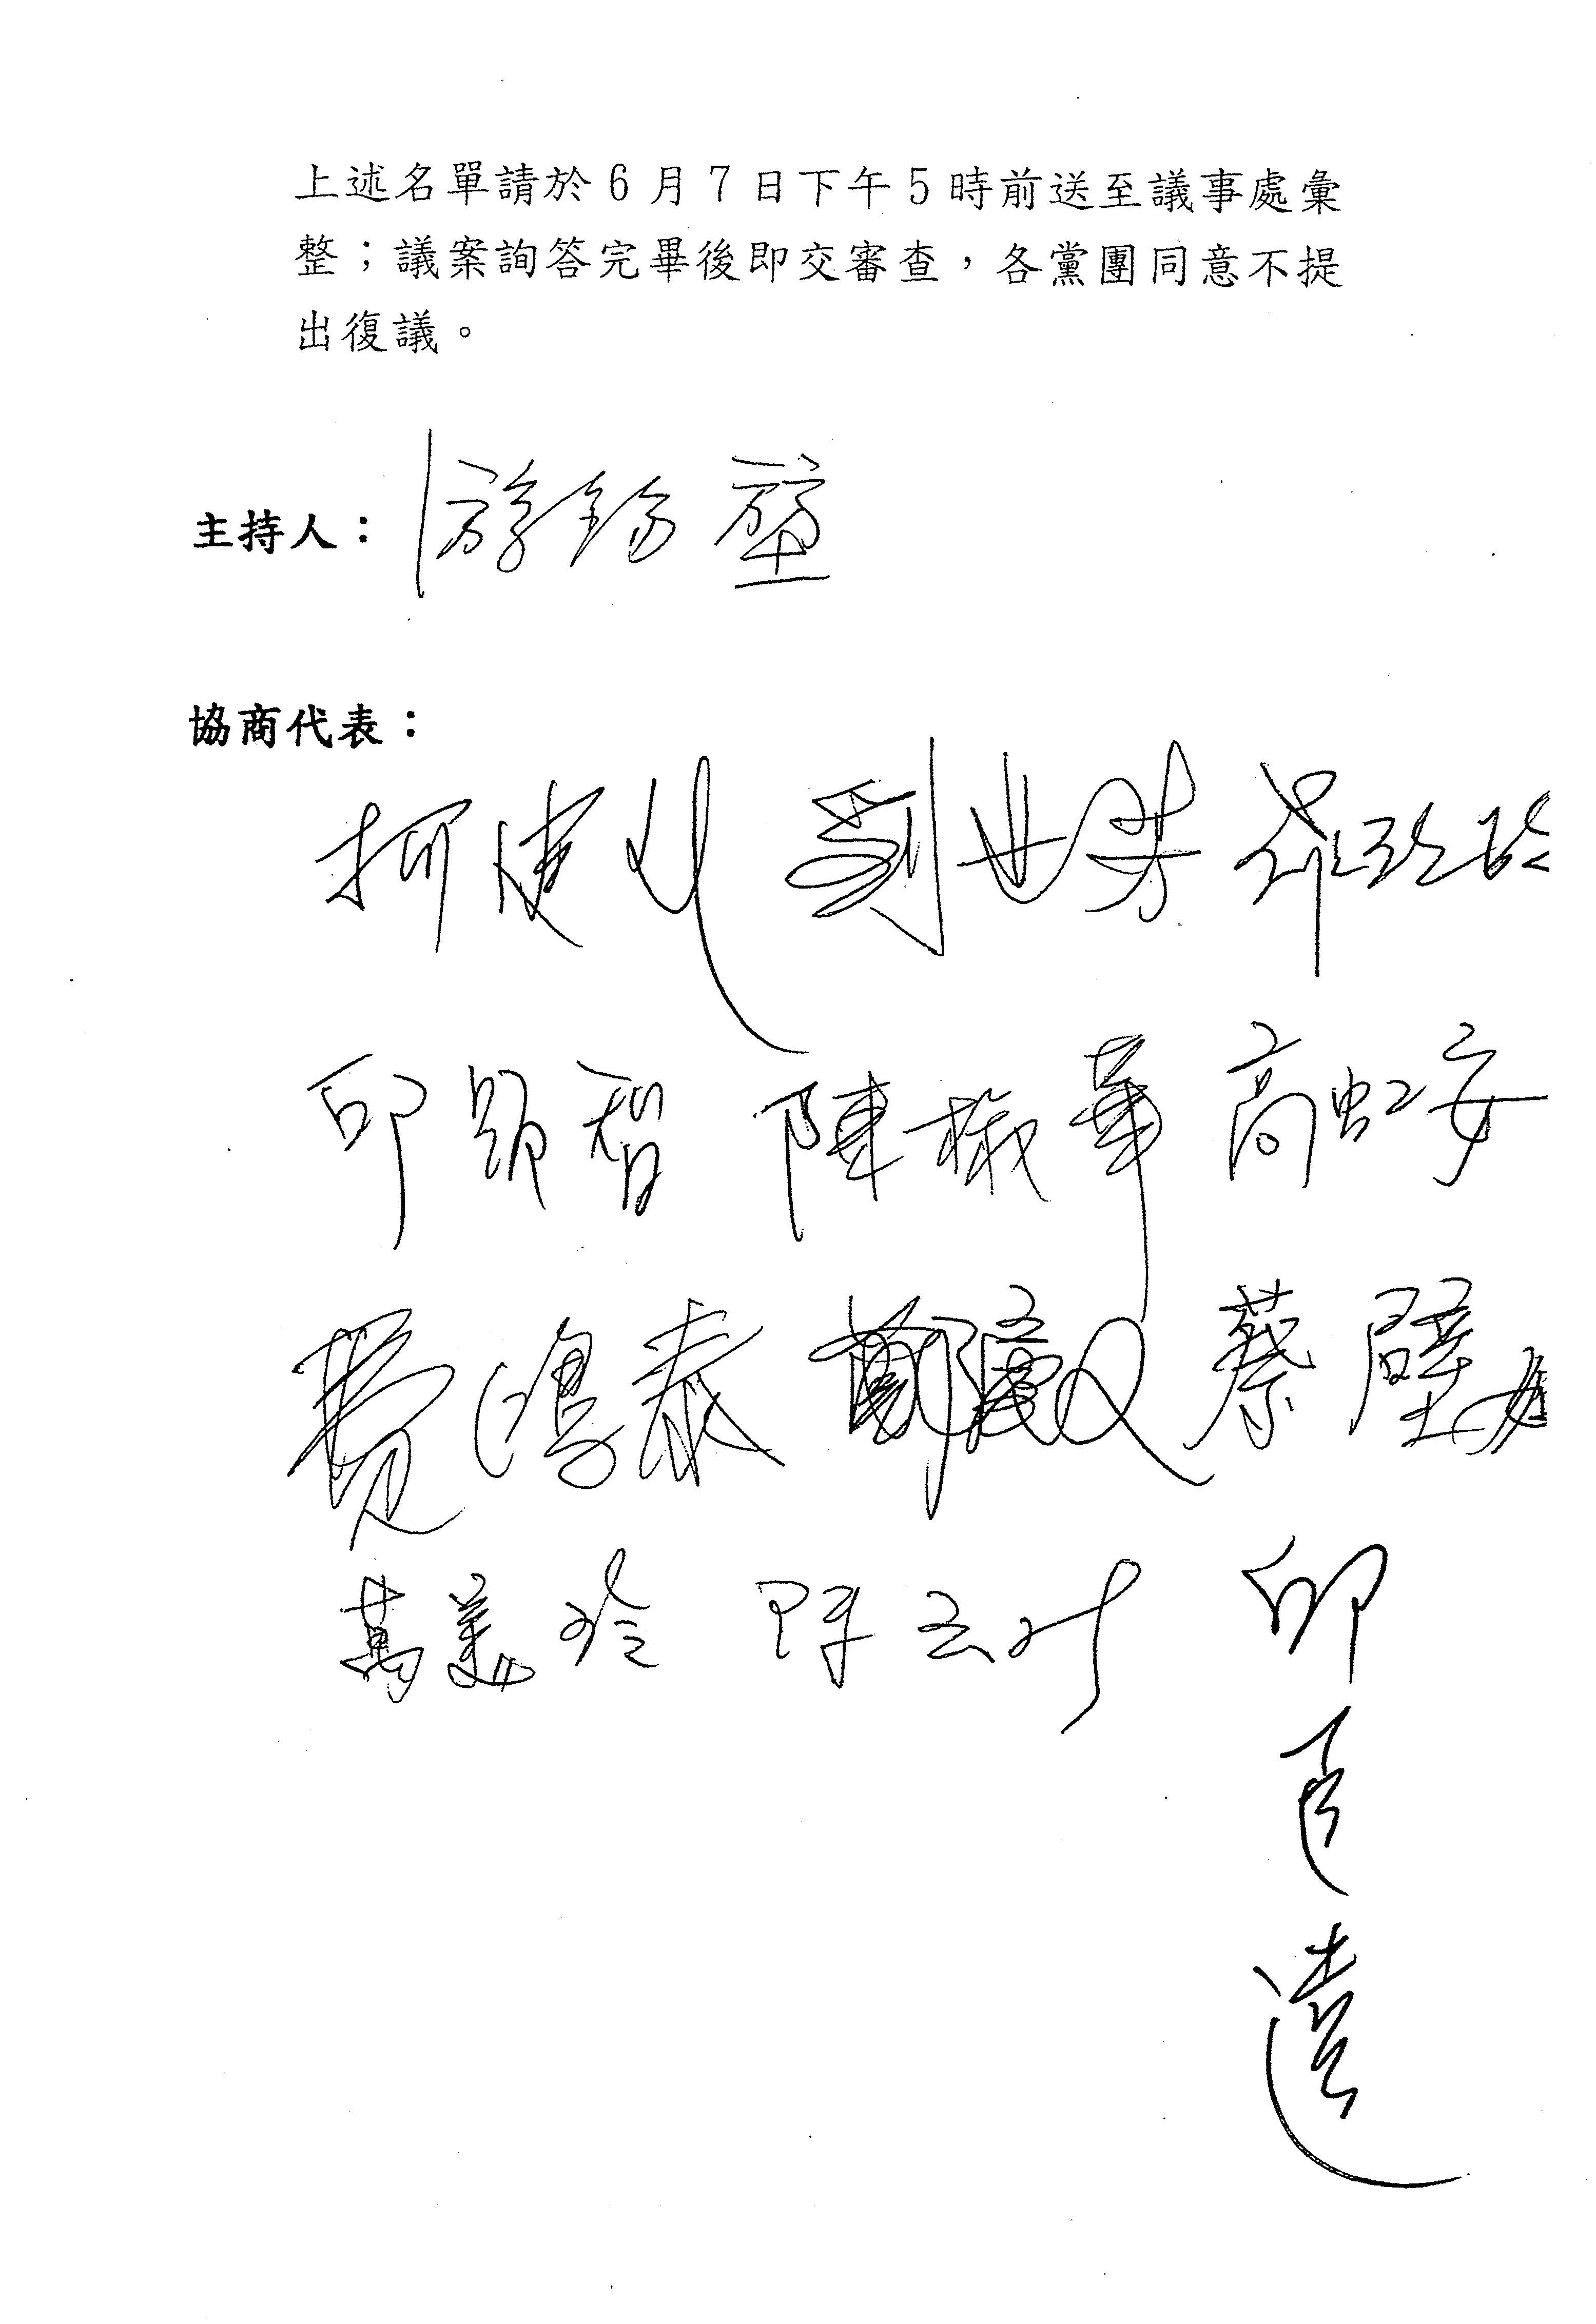 上述名單請於6月7日下午5時前送至議事處彙
整；議案詢答完畢後即交審查，各黨團同意不提
出復議。
主持人：游錫堃
協商代表：
柯建 劉世芳
邱顯智 陳椒華 高虹安
費鴻泰 鄭 蔡壁如
萬美玲
邱
臣
遠